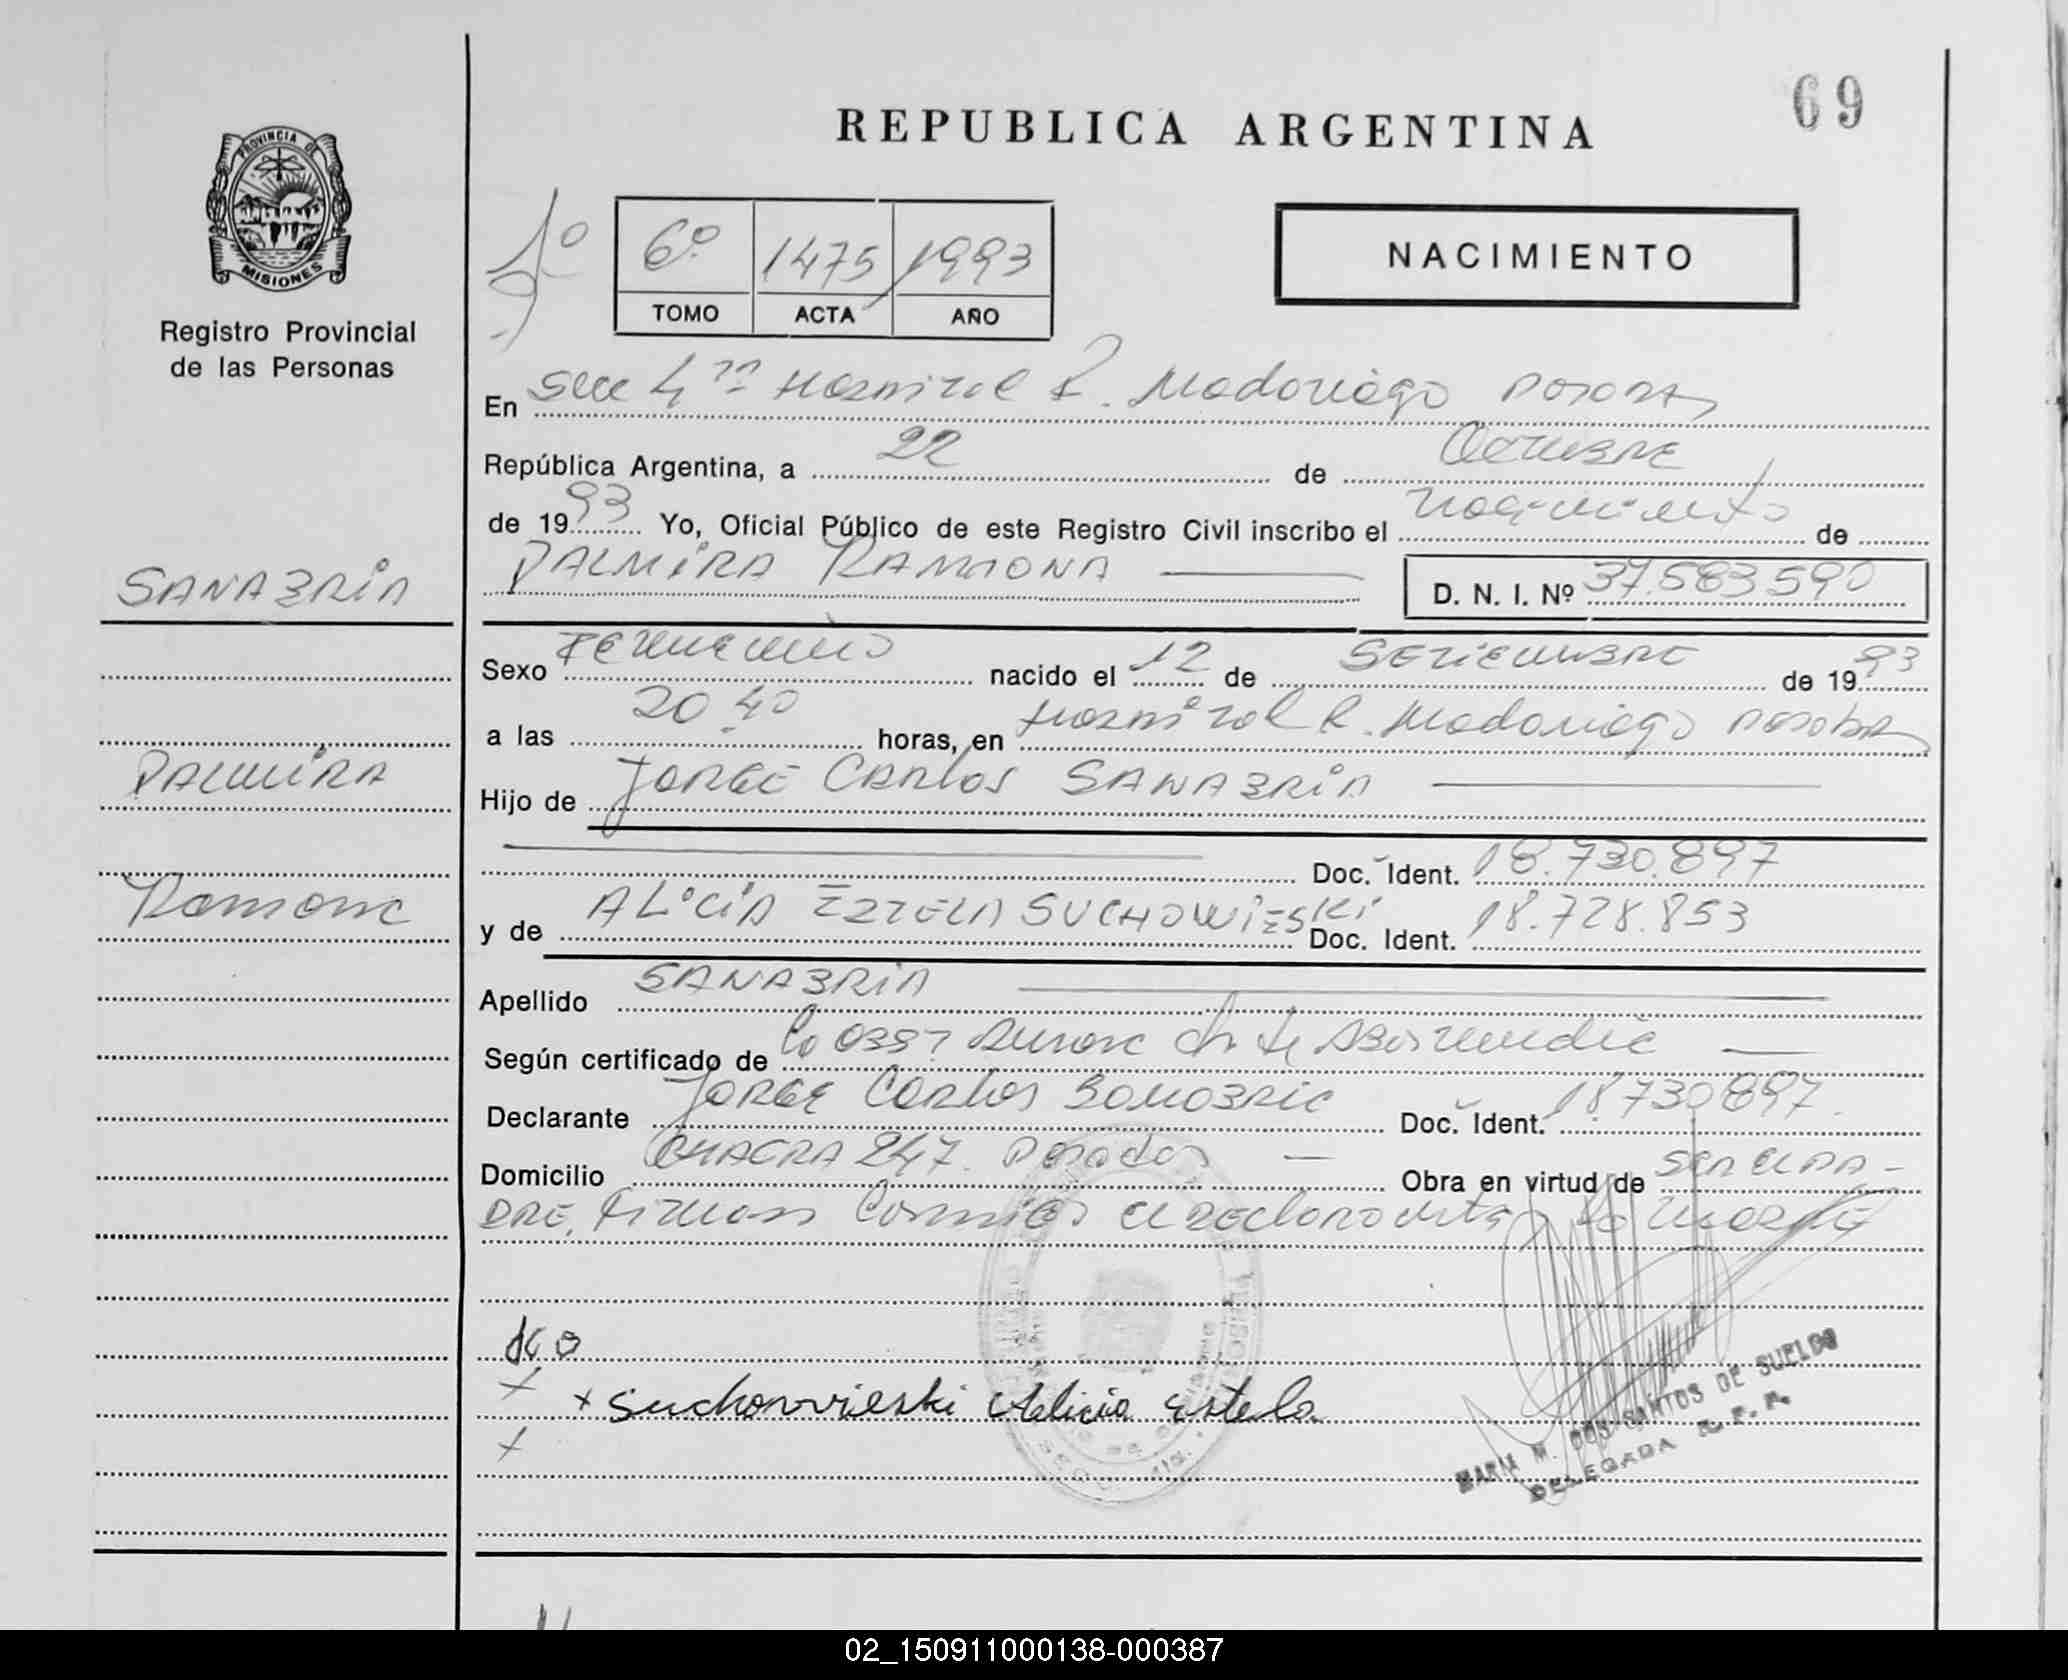 69
REPUBLICA ARGENTINA
PROVINCIA DE
MISIONES
Registro Provincial
de las Personas
6º 1475 1993
TOMO ACTA AÑO
NACIMIENTO
En Secc 4ta Hospital R. Madariaga Posadas
República Argentina, a 22 de Octubre
de 1993 Yo, Oficial Público de este Registro Civil inscribo el nacimiento de
SANABRIA
PALMIRA RAMONA D. N. I. Nº 37.583590
Sexo Femenino nacido el 12 de SETIEMBRE de 1993
a las 20 40 horas, en Hospital R. Madariaga Posadas
PALMIRA
Hijo de JORGE CARLOS SANABRIA
Doc. Ident. 18.730.897
Ramona
y de ALICIA SUCHOWIESKI Doc. Ident. 18.728.853
Apellido SANABRIA
Según certificado de
Declarante JORGE Carlos Sanabria Doc. Ident. 18730897
Domicilio CHACRA 247. Posadas Obra en virtud de SER EL PA-
DRE, Firman
x Suchowieski Alicia Estela
MARIA M. DOS SANTOS DE SUELDO
DELEGADA R. P. P.
02_150911000138-000387